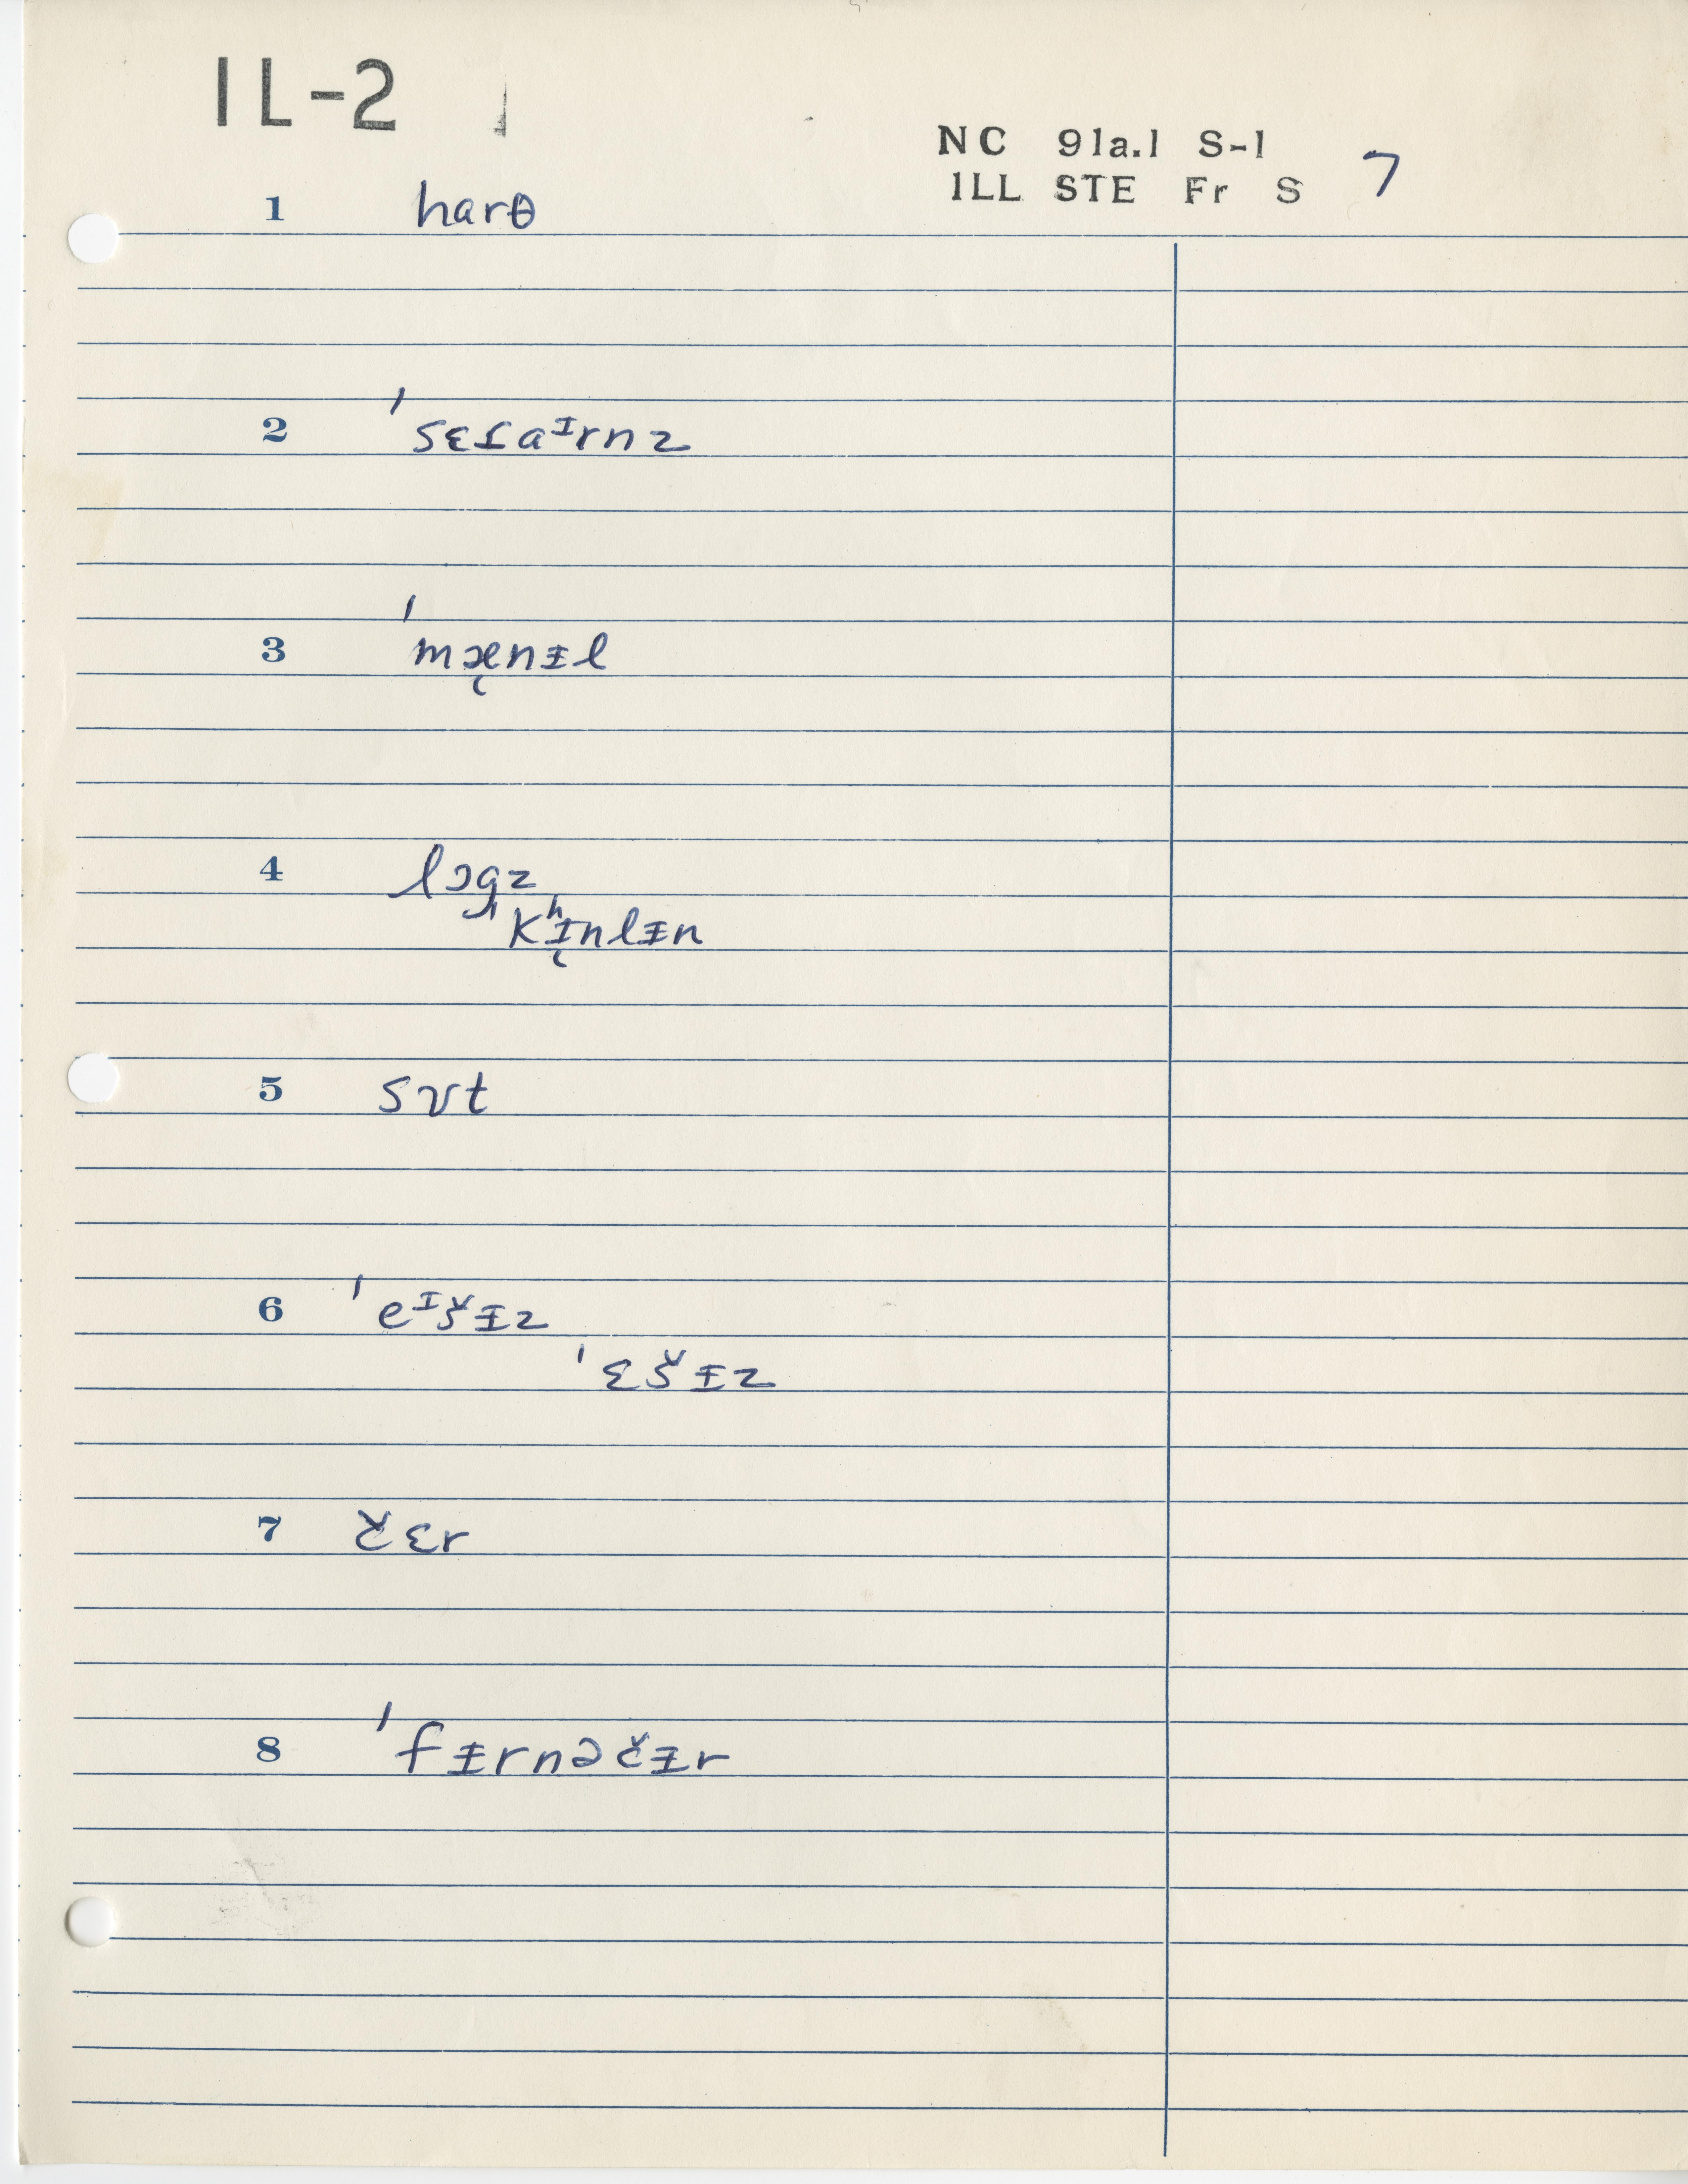 IL-2 1
NC 91a.1 S-1 7
ILL STE Fr S
1 harθ
2 ˈsɛfaᶦrnz
3 ˈmæ̨nɨl
4 lɔgz
kʰɪ̨nlɨn
5 sʊt
6 ˈeᶦšɨz
ˈɛšɨz
7 čɛr
8 ˈfɨrnəčɨr